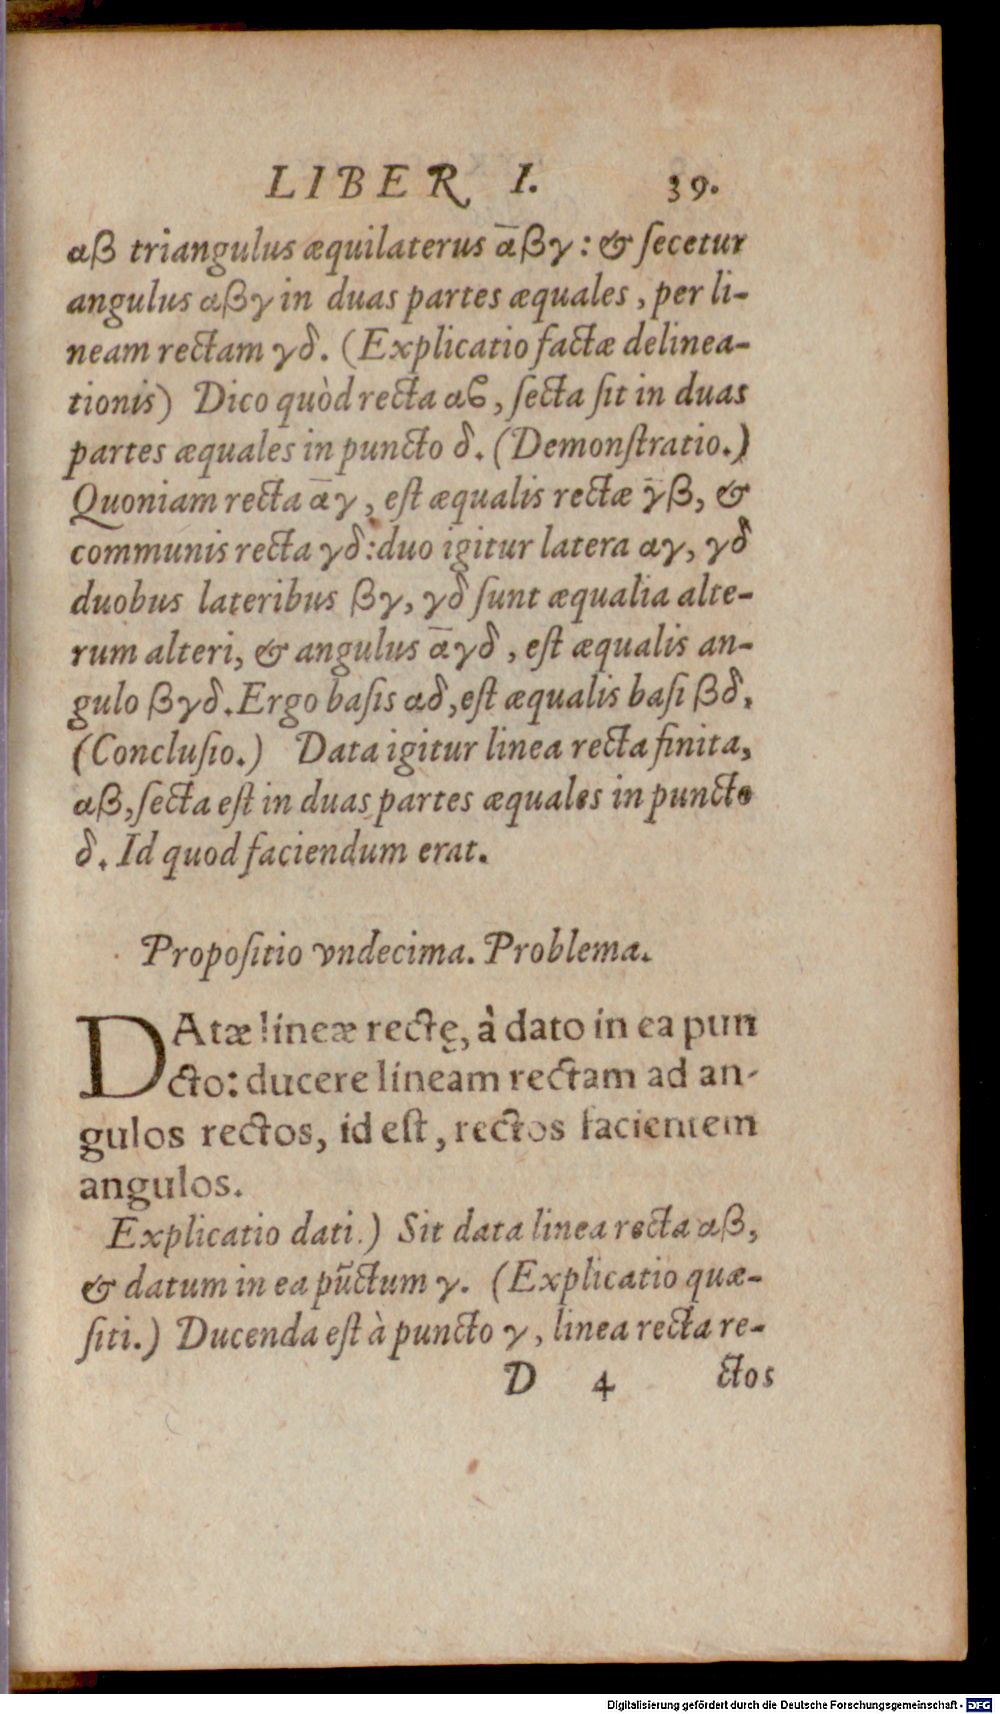 LIBER I. 39.
αβ triangulus æquilaterus ᾱβγ: & ſecetur
angulus αβγ in duas partes æquales, per li-
neam rectam γδ. (Explicatio factæ delinea-
tionis) Dico quòd recta αϐ, ſecta ſit in duas
partes æquales in puncto δ. (Demonſtratio.)
Quoniam recta ᾱγ, eſt æqualis rectæ γ̄β, &
communis recta γδ: duo igitur latera αγ, γδ
duobus lateribus βγ, γδ ſunt æqualia alte-
rum alteri, & angulus ᾱγδ, eſt æqualis an-
gulo βγδ. Ergo baſis αδ, eſt æqualis baſi βδ.
(Concluſio.) Data igitur linea recta finita,
αβ, ſecta eſt in duas partes æquales in puncto
δ. Id quod faciendum erat.
Propoſitio vndecima. Problema.
DAtæ lineæ rectę, à dato in ea pun
cto: ducere lineam rectam ad an-
gulos rectos, id eſt, rectos facientem
angulos.
Explicatio dati.) Sit data linea recta αβ,
& datum in ea pūctum γ. (Explicatio quæ-
ſiti.) Ducenda eſt à puncto γ, linea recta re-
D 4 ctos
Digitalisierung gefördert durch die Deutsche Forschungsgemeinschaft - DFG